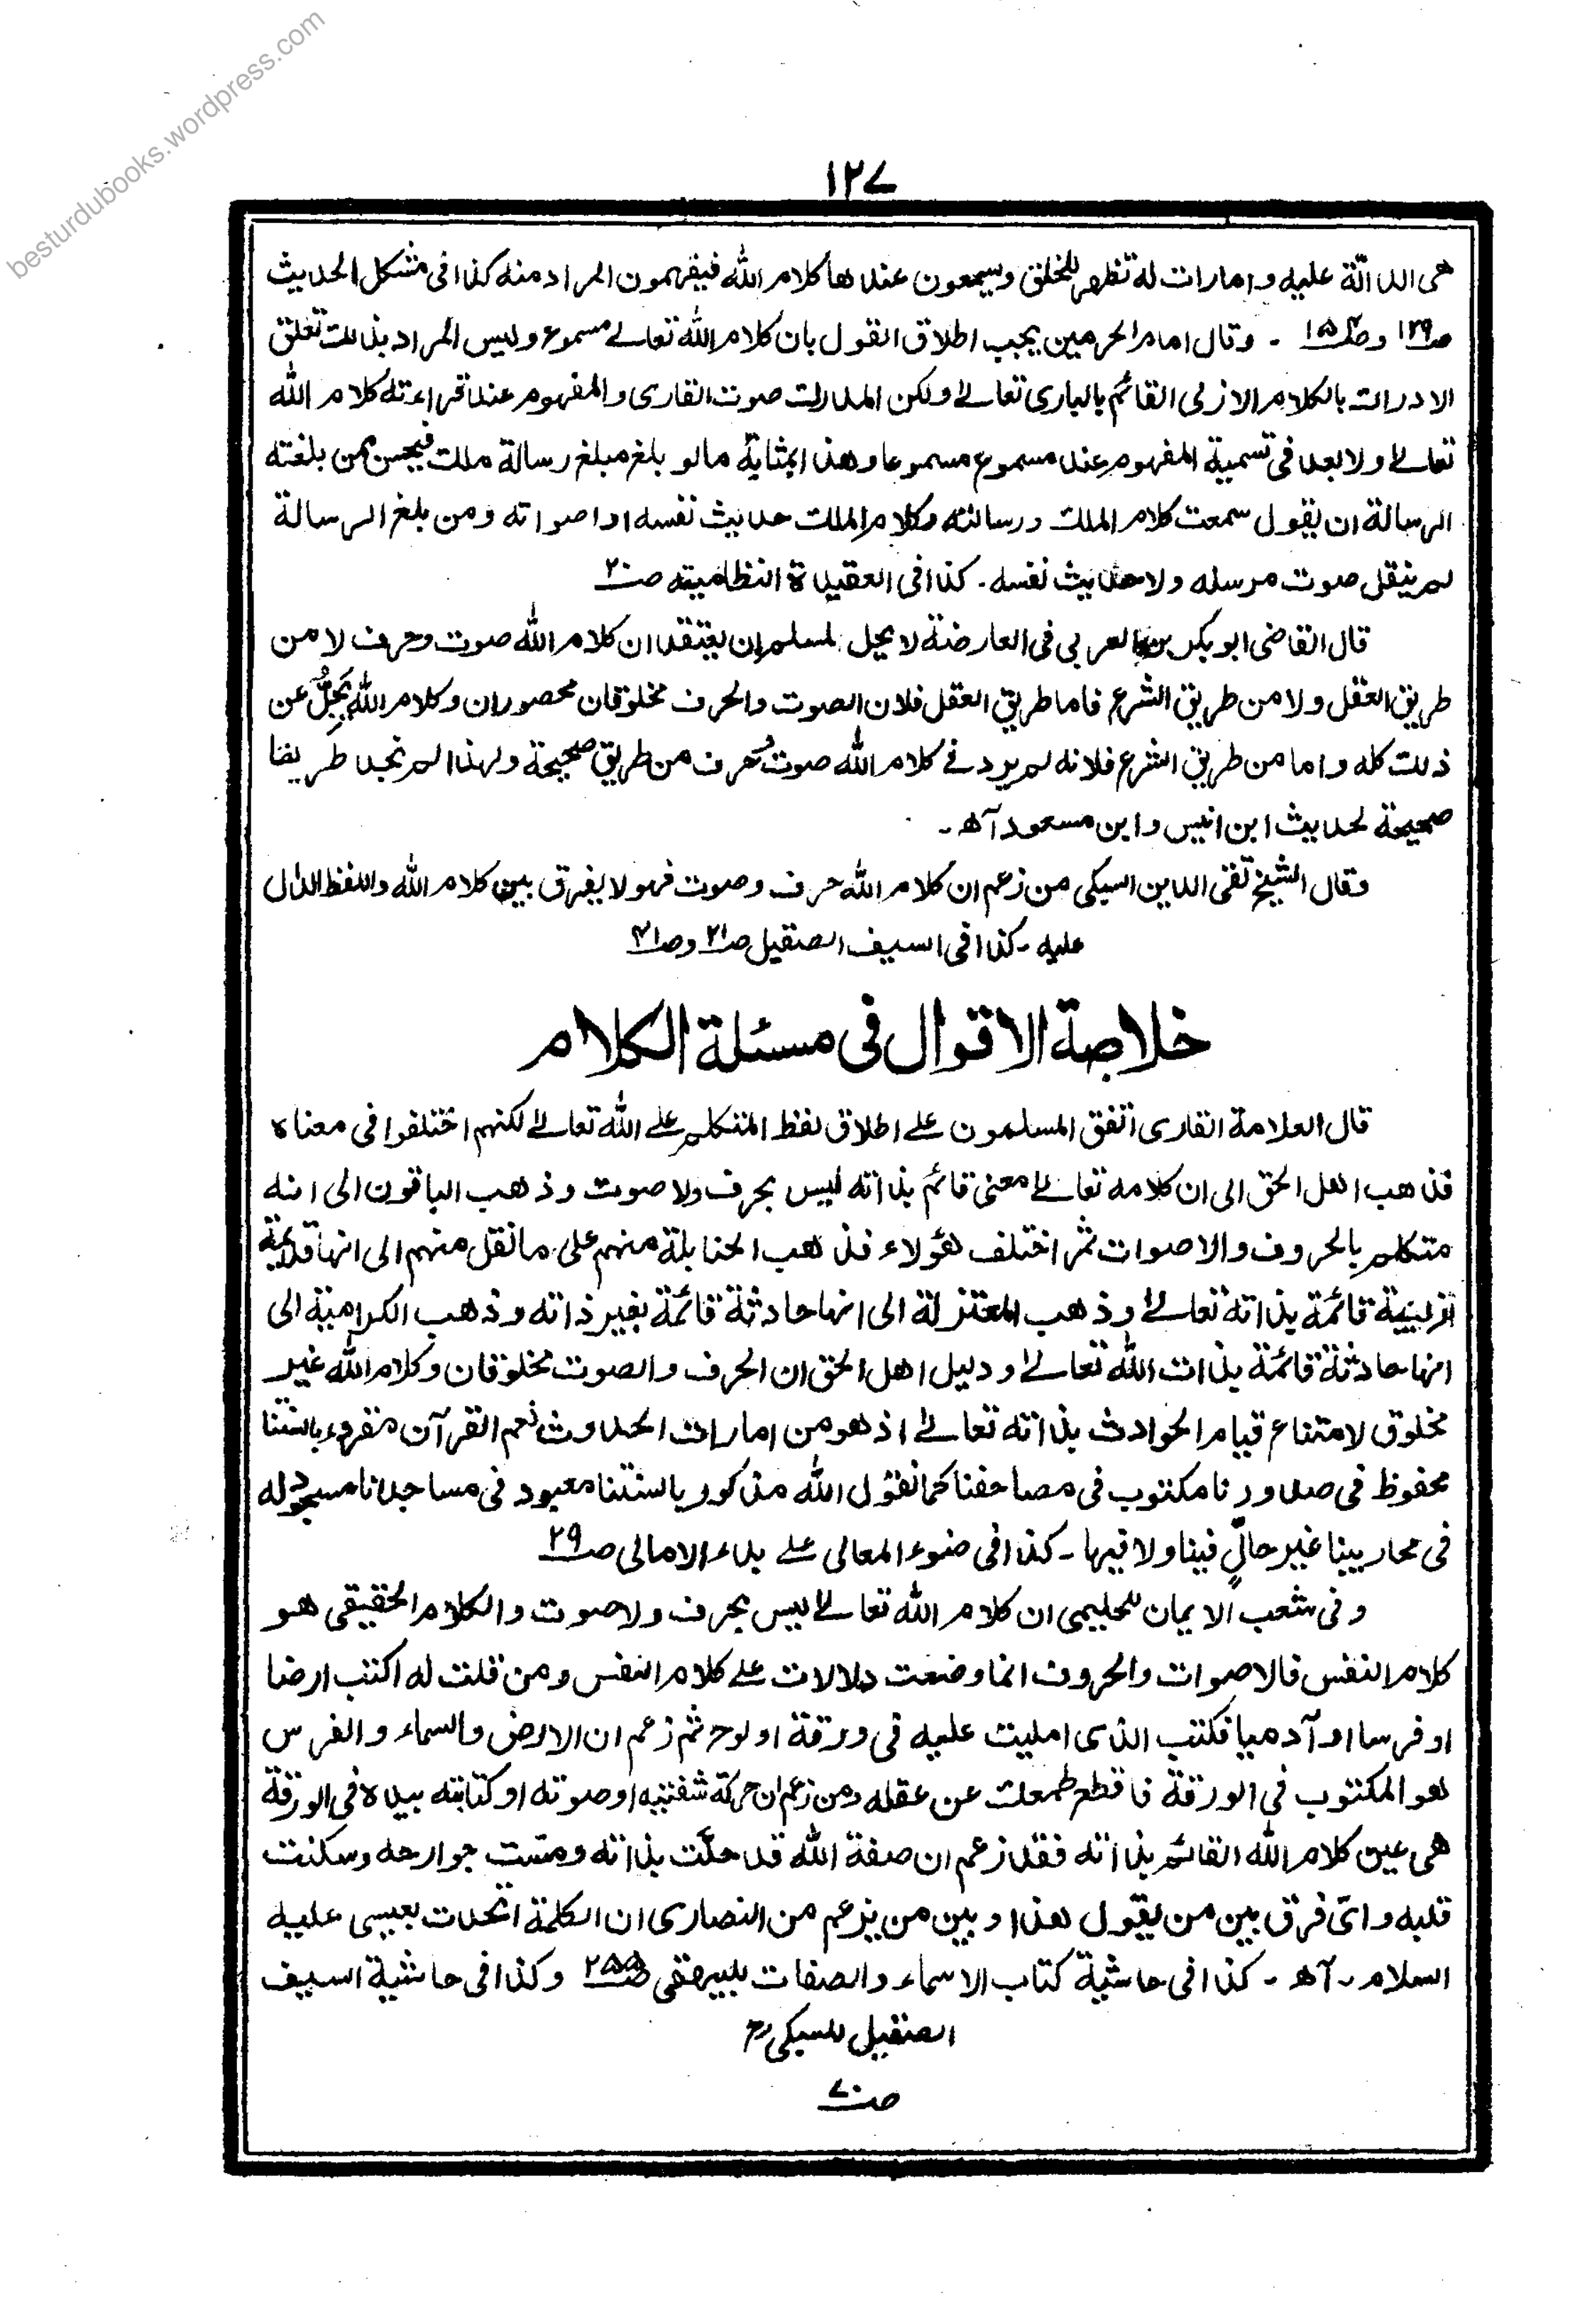 besturdubooks.wordpress.com
١٢٧
هى الدالّة عليه وامارات له تظهر للخلق ويسمعون عندها كلام الله فيفهمون المراد منه كذا فى مشكل الحديث
ص١٢٩ و ص١٥٢ ـ وقال امام الحرمين يجب اطلاق القول بان كلام الله تعالے مسموع وليس المراد بذالك تعلق
الادراك بالكلام الازلى القائم بالبارى تعالےٰ ولكن المدرك صوت القارى والمفهوم عند قراءته كلام الله
تعالےٰ ولا بعد فى تسمية المفهوم عند مسموع مسموعا وهذا بمثابة مالو بلغ مبلغ رسالة ملك فيحسن ممن بلغته
الرسالة ان يقول سمعت كلام الملك ورسالته وكلام الملك حديث نفسه او اصواته ومن بلغ الرسالة
لم ينقل صوت مرسله ولا حديث نفسه ـ كذا فى العقيدة النظامية ص٢٠
قال القاضى ابو بكر بن العربى فى العارضة لا يحل لمسلم ان يعتقد ان كلام الله صوت وحرف لا من
طريق العقل ولا من طريق الشرع فاما طريق العقل فلان الصوت والحرف مخلوقان محصوران وكلام الله يَجِلُّ عن
ذلك كله واما من طريق الشرع فلانه لم يرد فے كلام الله صوت وحرف من طريق صحيحة ولهذا لم نجد طريقا
صحيحة لحديث ابن انيس وابن مسعود آھ ـ
وقال الشيخ تقى الدين السبكى من زعم ان كلام الله حرف وصوت فهو لا يفرق بين كلام الله واللفظ الدال
عليه ـ كذا فى السيف الصقيل ص٢١ و ص٣١
خلاصة الاقوال فى مسئلة الكلام
قال العلامة القارى اتفق المسلمون علے اطلاق لفظ المتكلم علے الله تعالےٰ لكنهم اختلفوا فى معناه
فذهب اهل الحق الى ان كلامه تعالےٰ معنى قائم بذاته ليس بحرف ولا صوت وذهب الباقون الى انه
متكلم بالحروف والاصوات ثم اختلف هؤلاء فذهب الحنابلة منهم على ما نقل منهم الى انها قديمة
ازلية قائمة بذاته تعالےٰ وذهب المعتزلة الى انها حادثة قائمة بغير ذاته وذهب الكرامية الى
انها حادثة قائمة بذات الله تعالےٰ ودليل اهل الحق ان الحرف والصوت مخلوقان وكلام الله غير
مخلوق لامتناع قيام الحوادث بذاته تعالےٰ اذ هو من امارات الحدوث نعم القرآن مقروء بالسنتنا
محفوظ فى صدورنا مكتوب فى مصاحفنا كما نقول الله مذكور بالسنتنا معبود فى مساجدنا مسجود له
فى محاريبنا غير حالٍّ فينا ولا فيها ـ كذا فى ضوء المعالى علے بدء الامالى ص٢٩
وفى شعب الايمان للحليمى ان كلام الله تعالےٰ ليس بحرف ولا صوت والكلام الحقيقى هو
كلام النفس فالاصوات والحروف انما وضعت دلالات علے كلام النفس ومن قلت له اكتب ارضا
او فرسا او آدميا فكتب الذى امليت عليه فى ورقة او لوح ثم زعم ان الارض والسماء والفرس
هو المكتوب فى الورقة فاقطع طمعك عن عقله ومن زعم ان حركة شفتيه او صوته او كتابته بيده فى الورقة
هى عين كلام الله القائم بذاته فقد زعم ان صفة الله قد حلّت بذاته ومسّت جوارحه وسكنت
قلبه واىّ فرق بين من يقول هذا وبين من يزعم من النصارى ان الكلمة اتحدت بعيسى عليه
السلام ـ آھ ـ كذا فى حاشية كتاب الاسماء والصفات للبيهقى ص٢٥٥ وكذا فى حاشية السيف
الصقيل للسبكى رح
ص٧٠